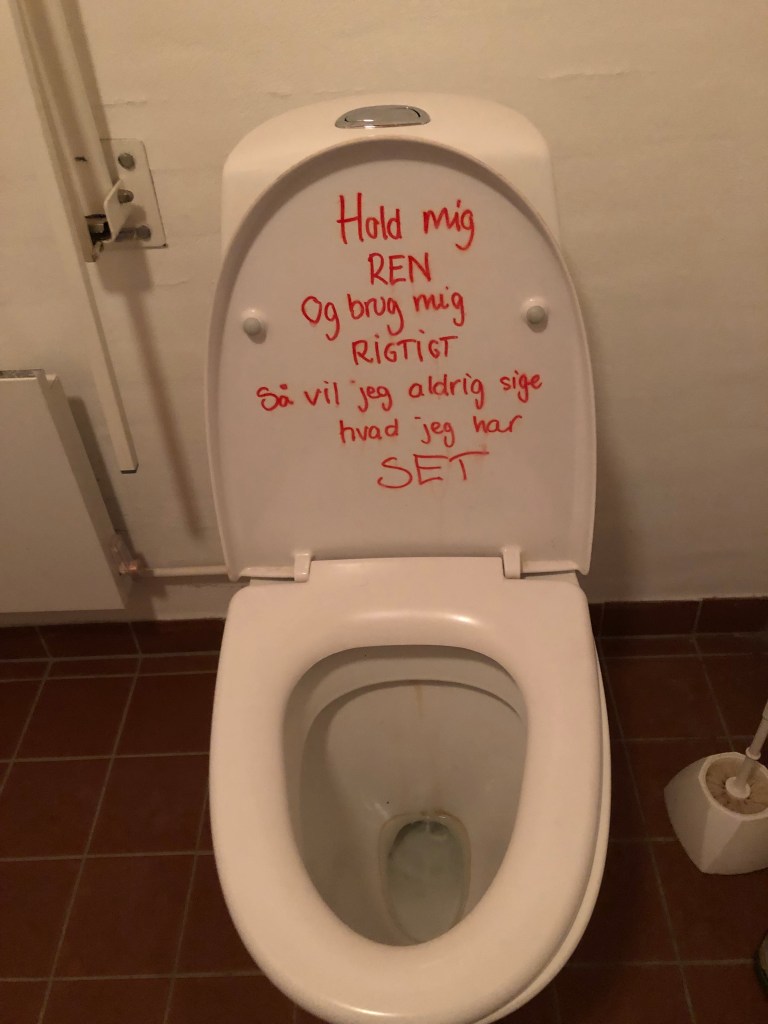 Hold mig
REN
Og brug mig
RiGTiGT
Så vil jeg aldrig sige
hvad jeg har
SET